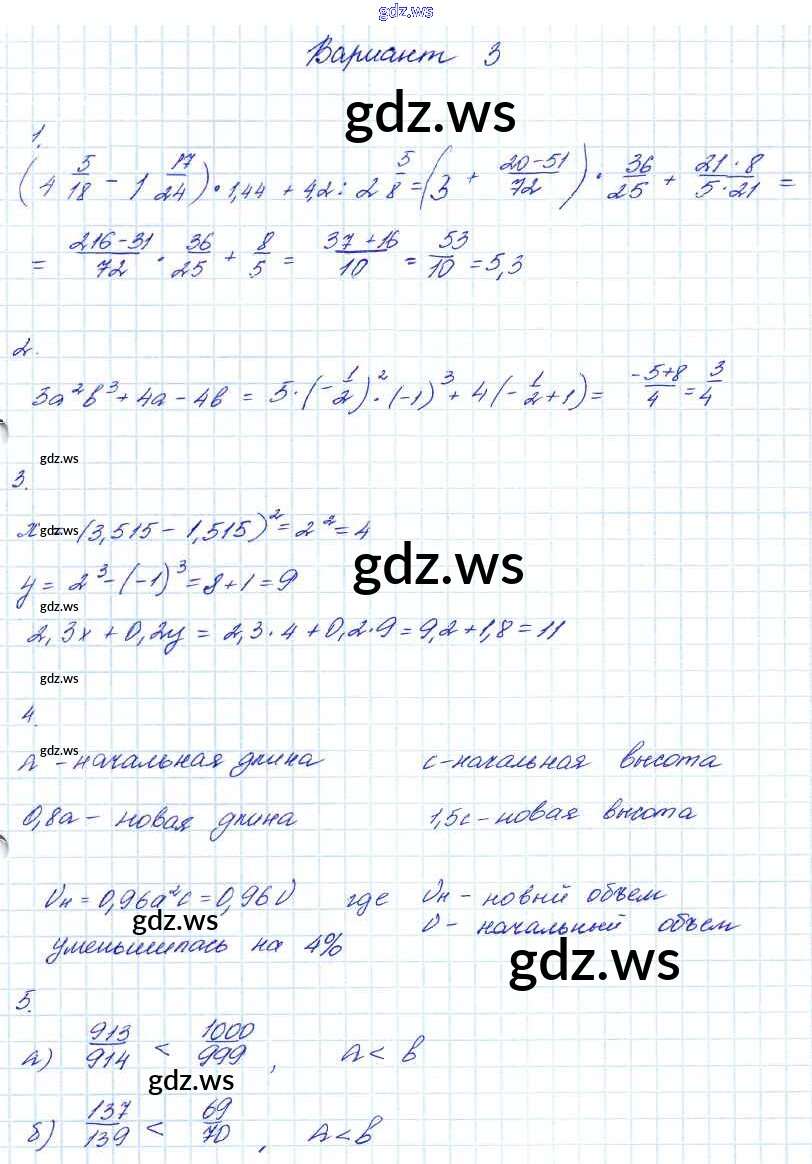 gdz.ws
Вариант 3
gdz.ws
1.
(4 5/18 - 1 17/24) · 1,44 + 4,2 : 2 5/8 = (3 + (20-51)/72) · 36/25 + (21·8)/(5·21) =
= (216-31)/72 · 36/25 + 8/5 = (37+16)/10 = 53/10 = 5,3
2.
5a²b³ + 4a - 4b = 5·(-1/2)²·(-1)³ + 4(-1/2+1) = (-5+8)/4 = 3/4
gdz.ws
3.
x gdz.ws (3,515 - 1,515)² = 2² = 4
gdz.ws
y = 2³ - (-1)³ = 8 + 1 = 9
gdz.ws
2,3x + 0,2y = 2,3·4 + 0,2·9 = 9,2 + 1,8 = 11
gdz.ws
4.
gdz.ws
a - начальная длина c - начальная высота
0,8a - новая длина 1,5c - новая высота
Vн = 0,96a²c = 0,96V где Vн - новый объем
gdz.ws
V - начальный объем
уменьшилась на 4%
gdz.ws
5.
а) 913/914 < 1000/999, a < b
gdz.ws
б) 137/139 < 69/70, a < b